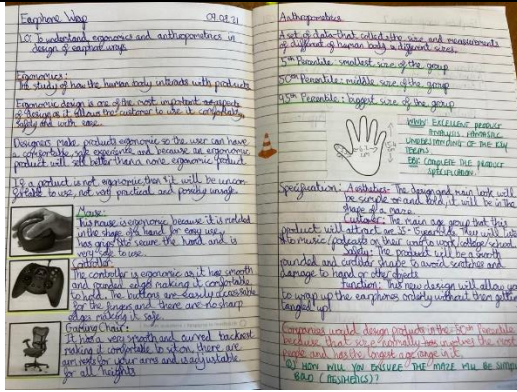 Earphone Wrap 09.03.21
LO: To understand ergonomics and anthropometrics in
design of earphone wraps
Ergonomics:
The study of how the human body interacts with products
Ergonomic design is one of the most important aspects
of design as it allows the customer to use it comfortably,
safely and with ease.
Designers make products ergonomic so the user can have
a comfortable, safe experience and because an ergonomic
product will sell better than a none ergonomic product.
If a product is not ergonomic then it will be uncom-
fortable to use, not very practical and possibly unsafe.
Mouse:
This mouse is ergonomic because it is molded
in the shape of a hand for easy use,
has grips to secure the hand and is
very safe to use.
Controller
The controller is ergonomic as it has smooth
and rounded edges making it comfortable
to hold. The buttons are easily accessable
for the fingers and there are no sharp
edges making it safe.
Gaming Chair:
It has a very smooth and curved backrest
making it comfortable to sit on, there are
arm rests for your arms and is adjustable
for all heights
Anthropometrics
A set of data that collected the size and measurements
of different of human body in different sizes.
5th Percentile: smallest size of the group
50th Percentile: middle size of the group
95th Percentile: biggest size of the group
WWW: EXCELLENT PRODUCT
ANALYSIS, FANTASTIC
UNDERSTANDING OF THE KEY
TERMS.
EBI: COMPLETE THE PRODUCT
SPECIFICATION.
Specification: Aesthetics: The design and main look will
be simple and bold, it will be in the
shape of a maze.
Customer: The main age group that this
product will attract are 15-35 year olds. They will listen
to music/podcasts on their way to work/college/school
Safety: The product will be a smooth
rounded and circular shape to avoid scratches and
damage to hand or other objects
Function: This new design will allow you
to wrap up the earphones orderly without them getting
tangled up!
Companies would design products in the 50th Percentile
because that size normally involves the most
people and has the longest age range in it.
Q) HOW WILL YOU ENSURE THE MAZE WILL BE SIMPLE
BOLD (AESTHETICS)?